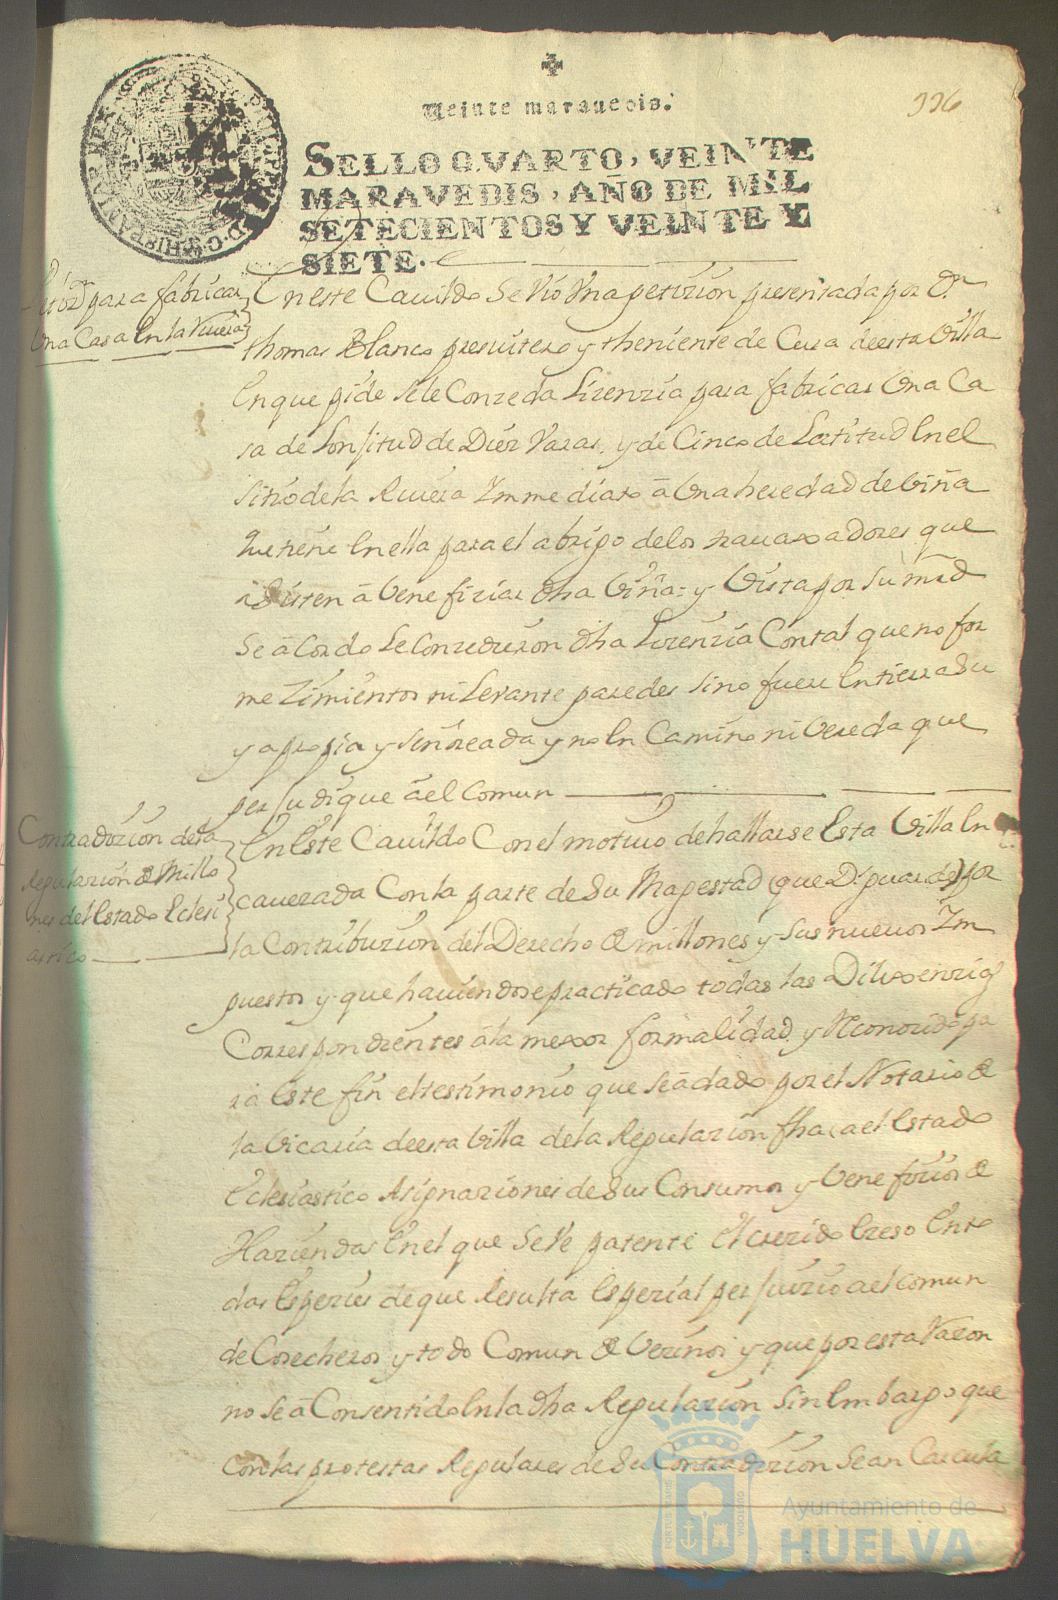 336
Veinte maravedis.
SELLO QVARTO, VEINTE
MARAVEDIS, AÑO DE MIL
SETECIENTOS Y VEINTE Y
SIETE.
para fabricar
Una Casa en la Rivera
En este Cavildo Se Vio Una petizion presentada por Dn
thomas Blanco presvitero y theniente de Cura deesta Villa
en que pide Sele Conzeda Lizenzia para fabricar Una Ca
sa de Lonjitud de Diez Varas, y de Cinco de Latitud en el
Sitio dela Rivera Immediato â Una heredad de Viña
que tiene en ella para el abrigo delos travaxadores que
asisten â Venefiziar dha Viña: y Vista por Su md
Se âCordo Le Conzedieron dha Lizenzia Con tal que no for
me Zimientos ni Levante paredes Sino fuere en tierra Su
ya propia y Señoreada y no en Camino ni Vereda que
perjudique âel Comun
Contradizion dela
Regulazion de Millo
nes del Estado Eclesi
astico
En Este Cavildo Con el motivo de hallarse Esta Villa En
cavezada Con la parte de Su Magestad (que D. guarde) por
la Contribuzion del Derecho de millones y Sus nuevos Im
puestos y que haviendose practicado todas las Dilixenzias
Correspondientes âla mexor formalidad y Reconozido pa
ra Este fin el testimonio que Se â dado por el Notario de
la Vicaria deesta Villa dela Regulazion fha a el Estado
Eclesiastico Asignaziones de Sus Consumos y Venefizios de
Haziendas En el que Se Ve patente El crezido Exeso En to
das Espezies de que Resulta Espezial perjuizio ael comun
de Cosecheros y todo Comun de Vezinos y que por esta Razon
no Se â Consentido En la dha Regulazion Sin Embargo que
con las protestas Regulares de Su Contradizion Sean Carcula
Ayuntamiento de
HUELVA